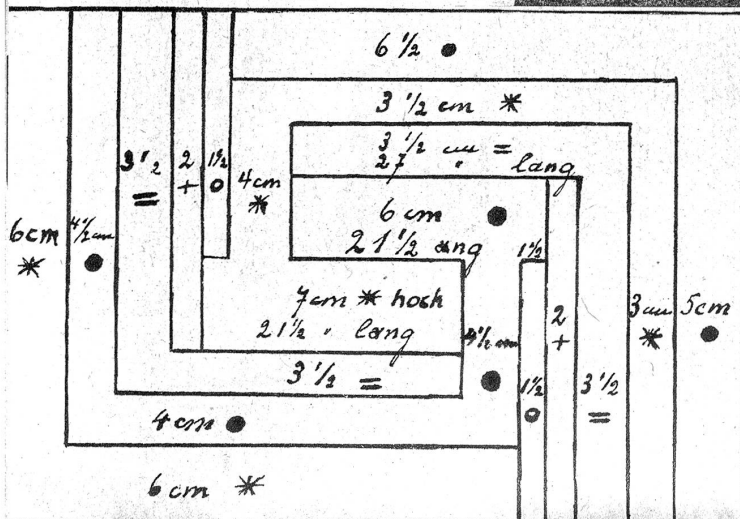 6 1/2 ●
3 1/2 cm *
3 1/2 cm =
27 " lang
3 1/2
=
2
+
1 1/2
o
4 cm
*
6 cm ●
21 1/2 lang
6 cm
*
4 1/2 cm
●
1 1/2
7 cm * hoch
21 1/2 " lang
4 1/2 cm
●
2
+
3 cm
*
5 cm
●
3 1/2 =
1 1/2
o
3 1/2
=
4 cm ●
6 cm *